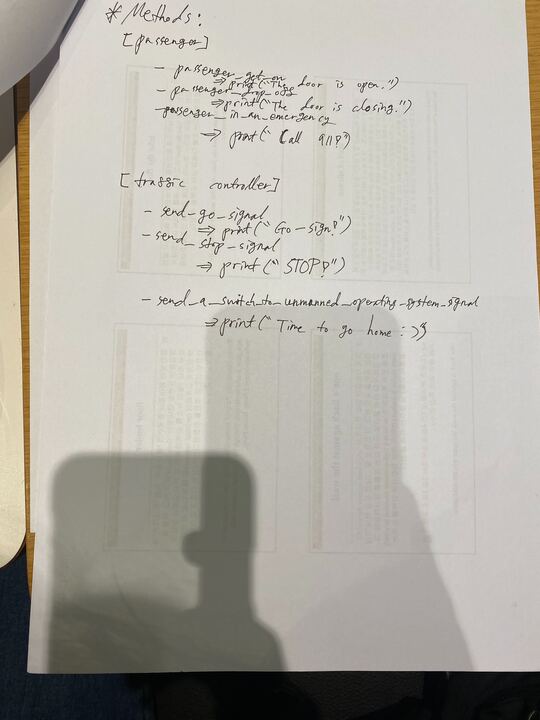 * Methods:
[passenger]
- passenger_get_on
⇒ print("The door is open.")
- passenger_drop_off
⇒ print("The door is closing.")
- passenger_in_an_emergency
⇒ print("Call 911!")
[traffic controller]
- send_go_signal
⇒ print("Go-sign!")
- send_stop_signal
⇒ print("STOP!")
- send_a_switch_to_unmanned_operating_system_signal
⇒ print("Time to go home :)")